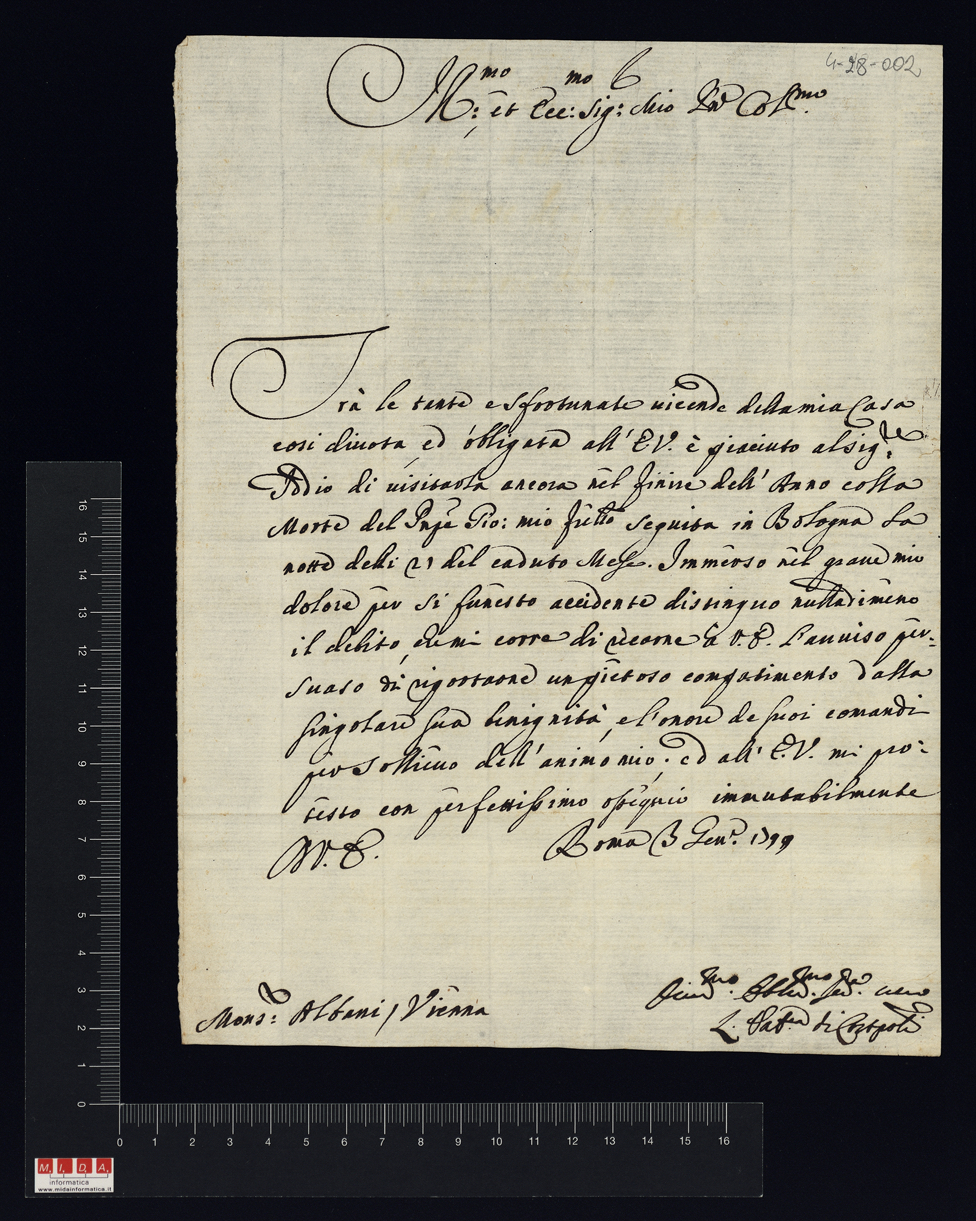 4-28-002
Ill:mo et Ecc:mo Sig:r Mio P̃ron Col:mo
Trà le tante e sfortunate vicende della mia Casa
così divota, ed obbligata all' E.V. è piaciuto al Sig:re
Iddio di visitarla ancora nel finire dell' Anno colla
Morte del Pnpe Gio: mio frello seguita in Bologna la
notte delli 21 del caduto Mese. Immerso nel grave mio
dolore per si funesto accidente distinguo nulladimeno
il debito, che mi corre di recarne à V.E. l'avviso per-
suaso di riportarne un pietoso compatimento dalla
singolare sua benignità, e l'onore de suoi comandi
per sollievo dell' animo mio. ed all' E.V. mi pro-
testo con perfettissimo ossequio immutabilmente
D V.E. Roma 3 Gen:o 1799
Mons:r Albani / Vienna
Div:mo Obbl:mo Ser:e vero
L. di
16
15
14
13
12
11
10
9
8
7
6
5
4
3
2
1
0
0 1 2 3 4 5 6 7 8 9 10 11 12 13 14 15 16
M. I. D. A.
informatica
www.midainformatica.it